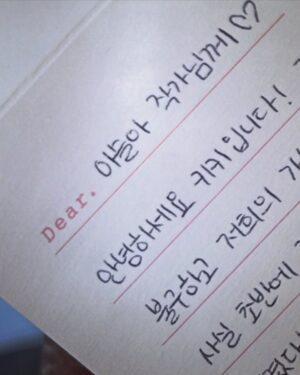 Dear. 이슬아 작가님께♡
안녕하세요 키키입니다!
불구하고 저희의
사실 초반에